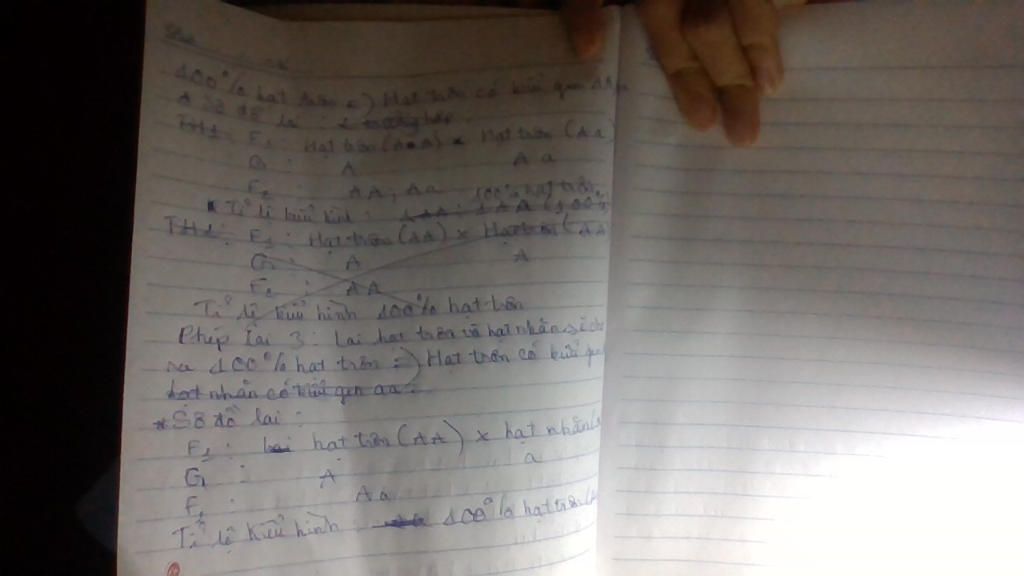 100% hạt trơn => Hạt trơn có kiểu gen
* Sơ đồ lai : 2 trường hợp
TH1: F1 : Hạt trơn (AA) x Hạt trơn (Aa)
G : A A a
F2 : AA ; Aa
* Tỉ lệ kiểu hình : 100% hạt trơn
TH1: F1 : Hạt trơn (AA) x Hạt trơn (AA
G : A A
F2 : AA
Tỉ lệ kiểu hình 100% hạt trơn
Phép lai 3 : Lai hạt trơn và hạt nhăn
ra 100% hạt trơn => Hạt trơn có kiểu gen
hạt nhăn có kiểu gen aa.
* Sơ đồ lai :
F1 : hạt trơn (AA) x hạt nhăn (
G : A a
F1 : Aa
Tỉ lệ kiểu hình 100% hạt trơn (